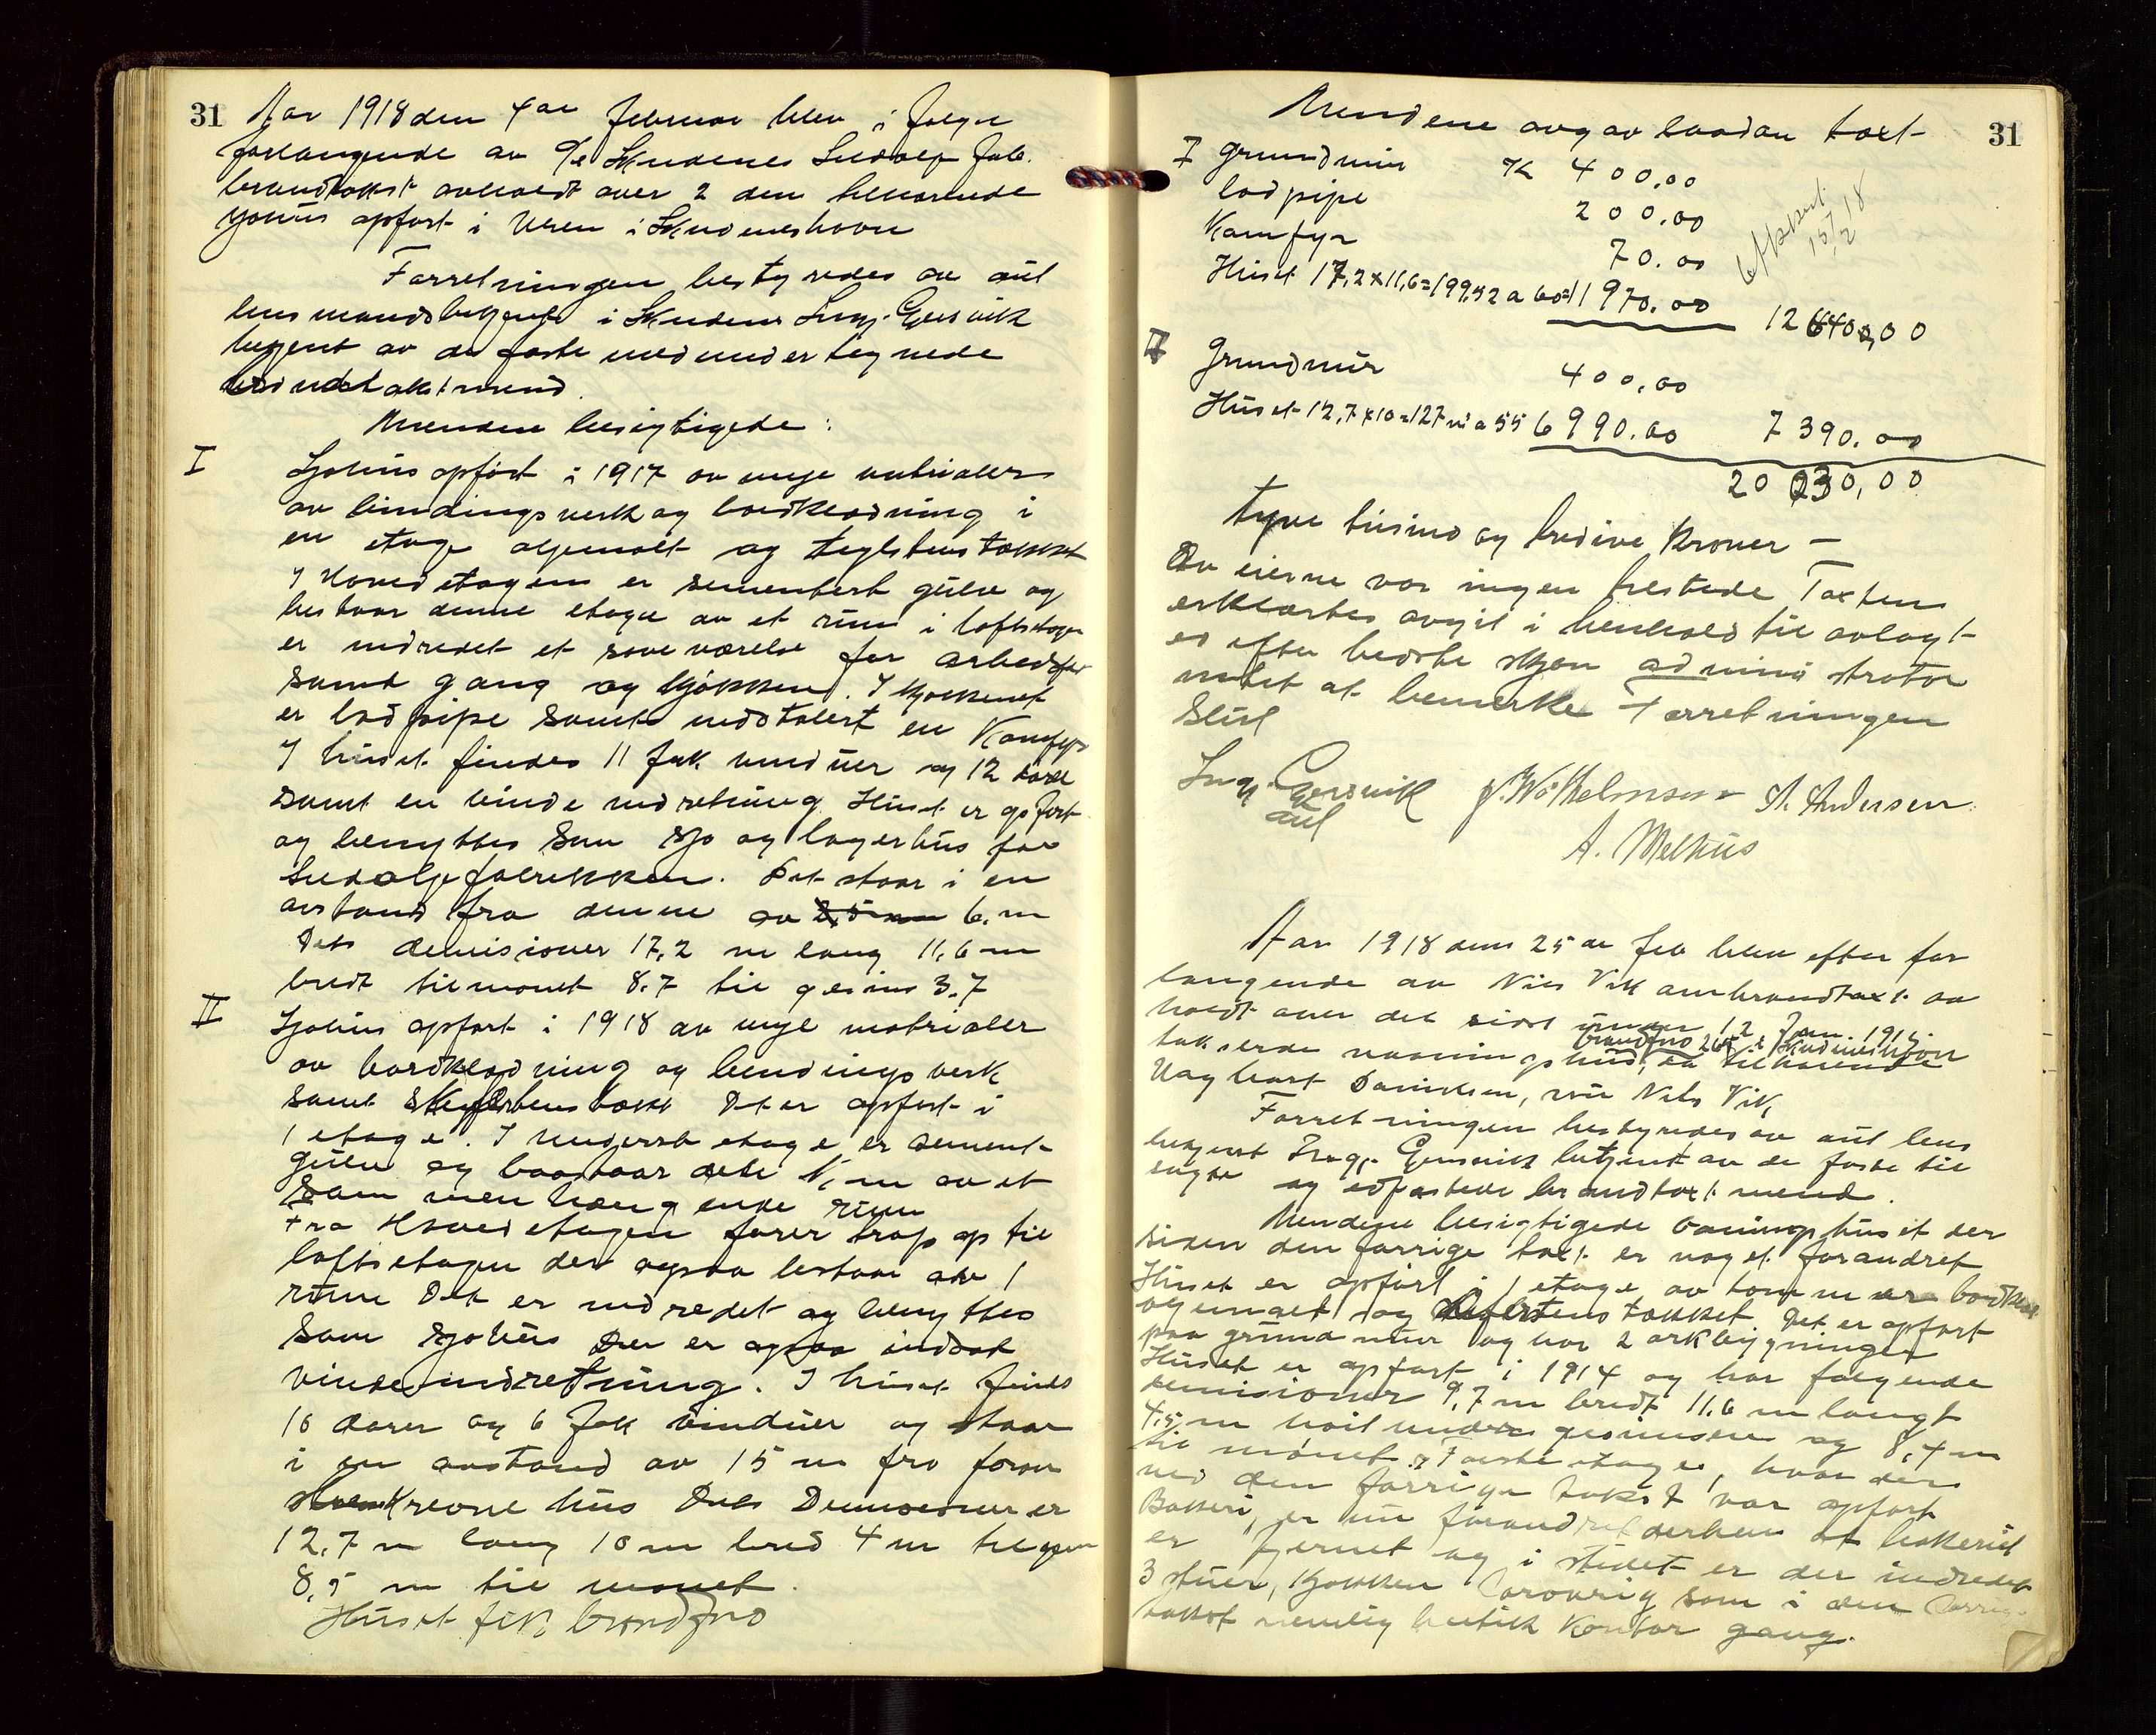 31
Aar 1918 den 4de februar blev i følge
forlangende av A/S Skudenes Sildolje fab.
brandtakst avholdt over 2 den tilhørende
sjøhus opført i Uren i Skudeneshavn
Forretningen bestyredes av aut
lensmandsbetjent i Skudenes Ingv. Gjersvik
betjent av de faste med undertegnede
brandtakstmænd.
Mændene besigtigede:
I
Sjøhus opført i 1917 av nye materialer
av bindingsverk og bordklædning i
en etage oljemalt og teglstenstækket
I Hovedetagen er sementert gulv og
bestaar denne etage av et rum i loftsetagen
er indredet et soveværelse for arbeids
samt gang og kjøkken. I kjøkkenet
er lodpipe samt indstalert en Komfyr
I huset findes 11 fak vinduer og 12 døre
samt en vinde indretning. Huset er opført
og benyttes som sjø og lagerhus for
Sildoljefabrikken. Det staar i en
avstand fra denne av 6. m
Dets demisioner 17,2 m lang 11,6 m
bredt til mønet 8.7 til gesims 3.7
II
Sjøhus opført i 1918 av nye matrialer
av bordklædning og bindingsverk
samt skiferstenstækt Det er opført i
1 etage. I nederste etage er sement-
gulv og bestaar dette av et
sammenhængende rum
Fra Hovedetagen fører trap op til
loftsetagen der ogsaa bestaar av 1
rum Det er indredet og benyttes
som sjøhus Der er ogsaa indsat
vindeindretning. I huset finds
10 dører og 6 fak vinduer og staar
i en avstand av 15 m fra foran
skrevne hus Dets Demisioner er
12.7 m lang 10 m bred 4 m til gesims
8,5 m til mønet.
Huset fik brandfno
31
Mændene avgav saadan taxt
I grundmur Kr 400,00
lodpipe 200,00
Komfyr 70.00
Huset 17,2 x 11,6 = 199,52 a 60 = 11970.00 12640,00
15/2 18
II Grundmur 400,00
Huset 12,7 x 10 = 127 m a 55 6990.00 7390.00
20030,00
tyve tusind og tredive kroner —
Av eierne var ingen tilstede Taxten
erklærtes avgit i henhold til avlagt
ed efter bedste skjøn administrator
intet at bemerke Forretningen
slut
Ingv. Gjersvik J. Wilhelmsen A. Andersen
aut
A. Melhus
Aar 1918 den 25de feb blev efter for
langende av Nils Vik ombrandtaxt av
holdt over det sidst under 12 Jan. 1915
brandfno 265 i Skudeneshavn
takserde vaaningshus, tilhørende
Haghart Danielsen, nu Nils Vik,
Forretningen bestyredes av aut lens
betjent Ingv. Gjersvik betjent av de faste til
sagte og edfæstede brandtaxtmænd.
Mændene besigtigede vaaningshuset der
siden den forrige taxt er noget forandret
Huset er opført i 1 etage av tømmer bordklæd
oljemalt og skiferstens tækket. Det er opført
paa grundmur og har 2 arkbygninger
Huset er opført i 1914 og har følgende
demisioner 9,7 m bredt 11.6 m langt
4,5 m høit under gesimsen og 8,4 m
til mønet. I første etage, hvor der
ved den forrige takst var opført
Bakeri, er nu forandret derhen at bakeriet
er fjernet og i stedet er der indredet
3 stuer, kjøkken forøvrig som i den forrige
takst nemlig butik Kontor gang.